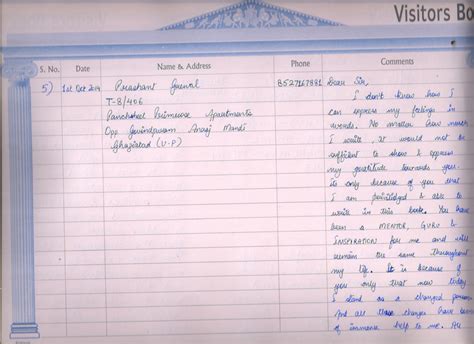 Visitors Bo
S. No. Date Name & Address Phone Comments
5) 1st Oct 2014 Prashant 8527167881 Dear Sir,
T-8/406
I don't know how I
Panchsheel Primrose Apartments
can express my feelings in
Opp Govindpuram Anaj Mandi
words. No matter how much
Ghaziabad (U.P)
I write, it would not be
sufficient to show & express
my gratitude towards you.
its only because of you that
I am priviledged & able to
write in this book. You have
been a MENTOR, GURU &
INSPIRATION for me and will
remain the same throughout
my life. It is because of
you only that now today
I stand as a changed person
And all these changes have been
of immense help to me.